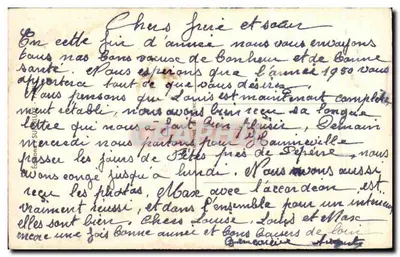 Chers frère et sœur
En cette fin d'année nous vous envoyons
tous nos bons vœux de bonheur et de bonne
santé. Nous espérons que l'année 1950 vous
apportera tout ce que vous désirez.
Nous pensons que Louis est maintenant complète
ment rétabli, nous avons bien reçu sa longue
lettre qui nous a fait bien plaisir. Demain
mercredi nous partons pour
passer les jours de fêtes près de nous
avons congé jusqu'à lundi. Nous avons aussi
reçu les photos. Max avec l'accordéon est
vraiment réussi, et dans l'ensemble pour un
elles sont bien. Chers Louise, Louis et Max
encore une fois bonne année et bons baisers de loin